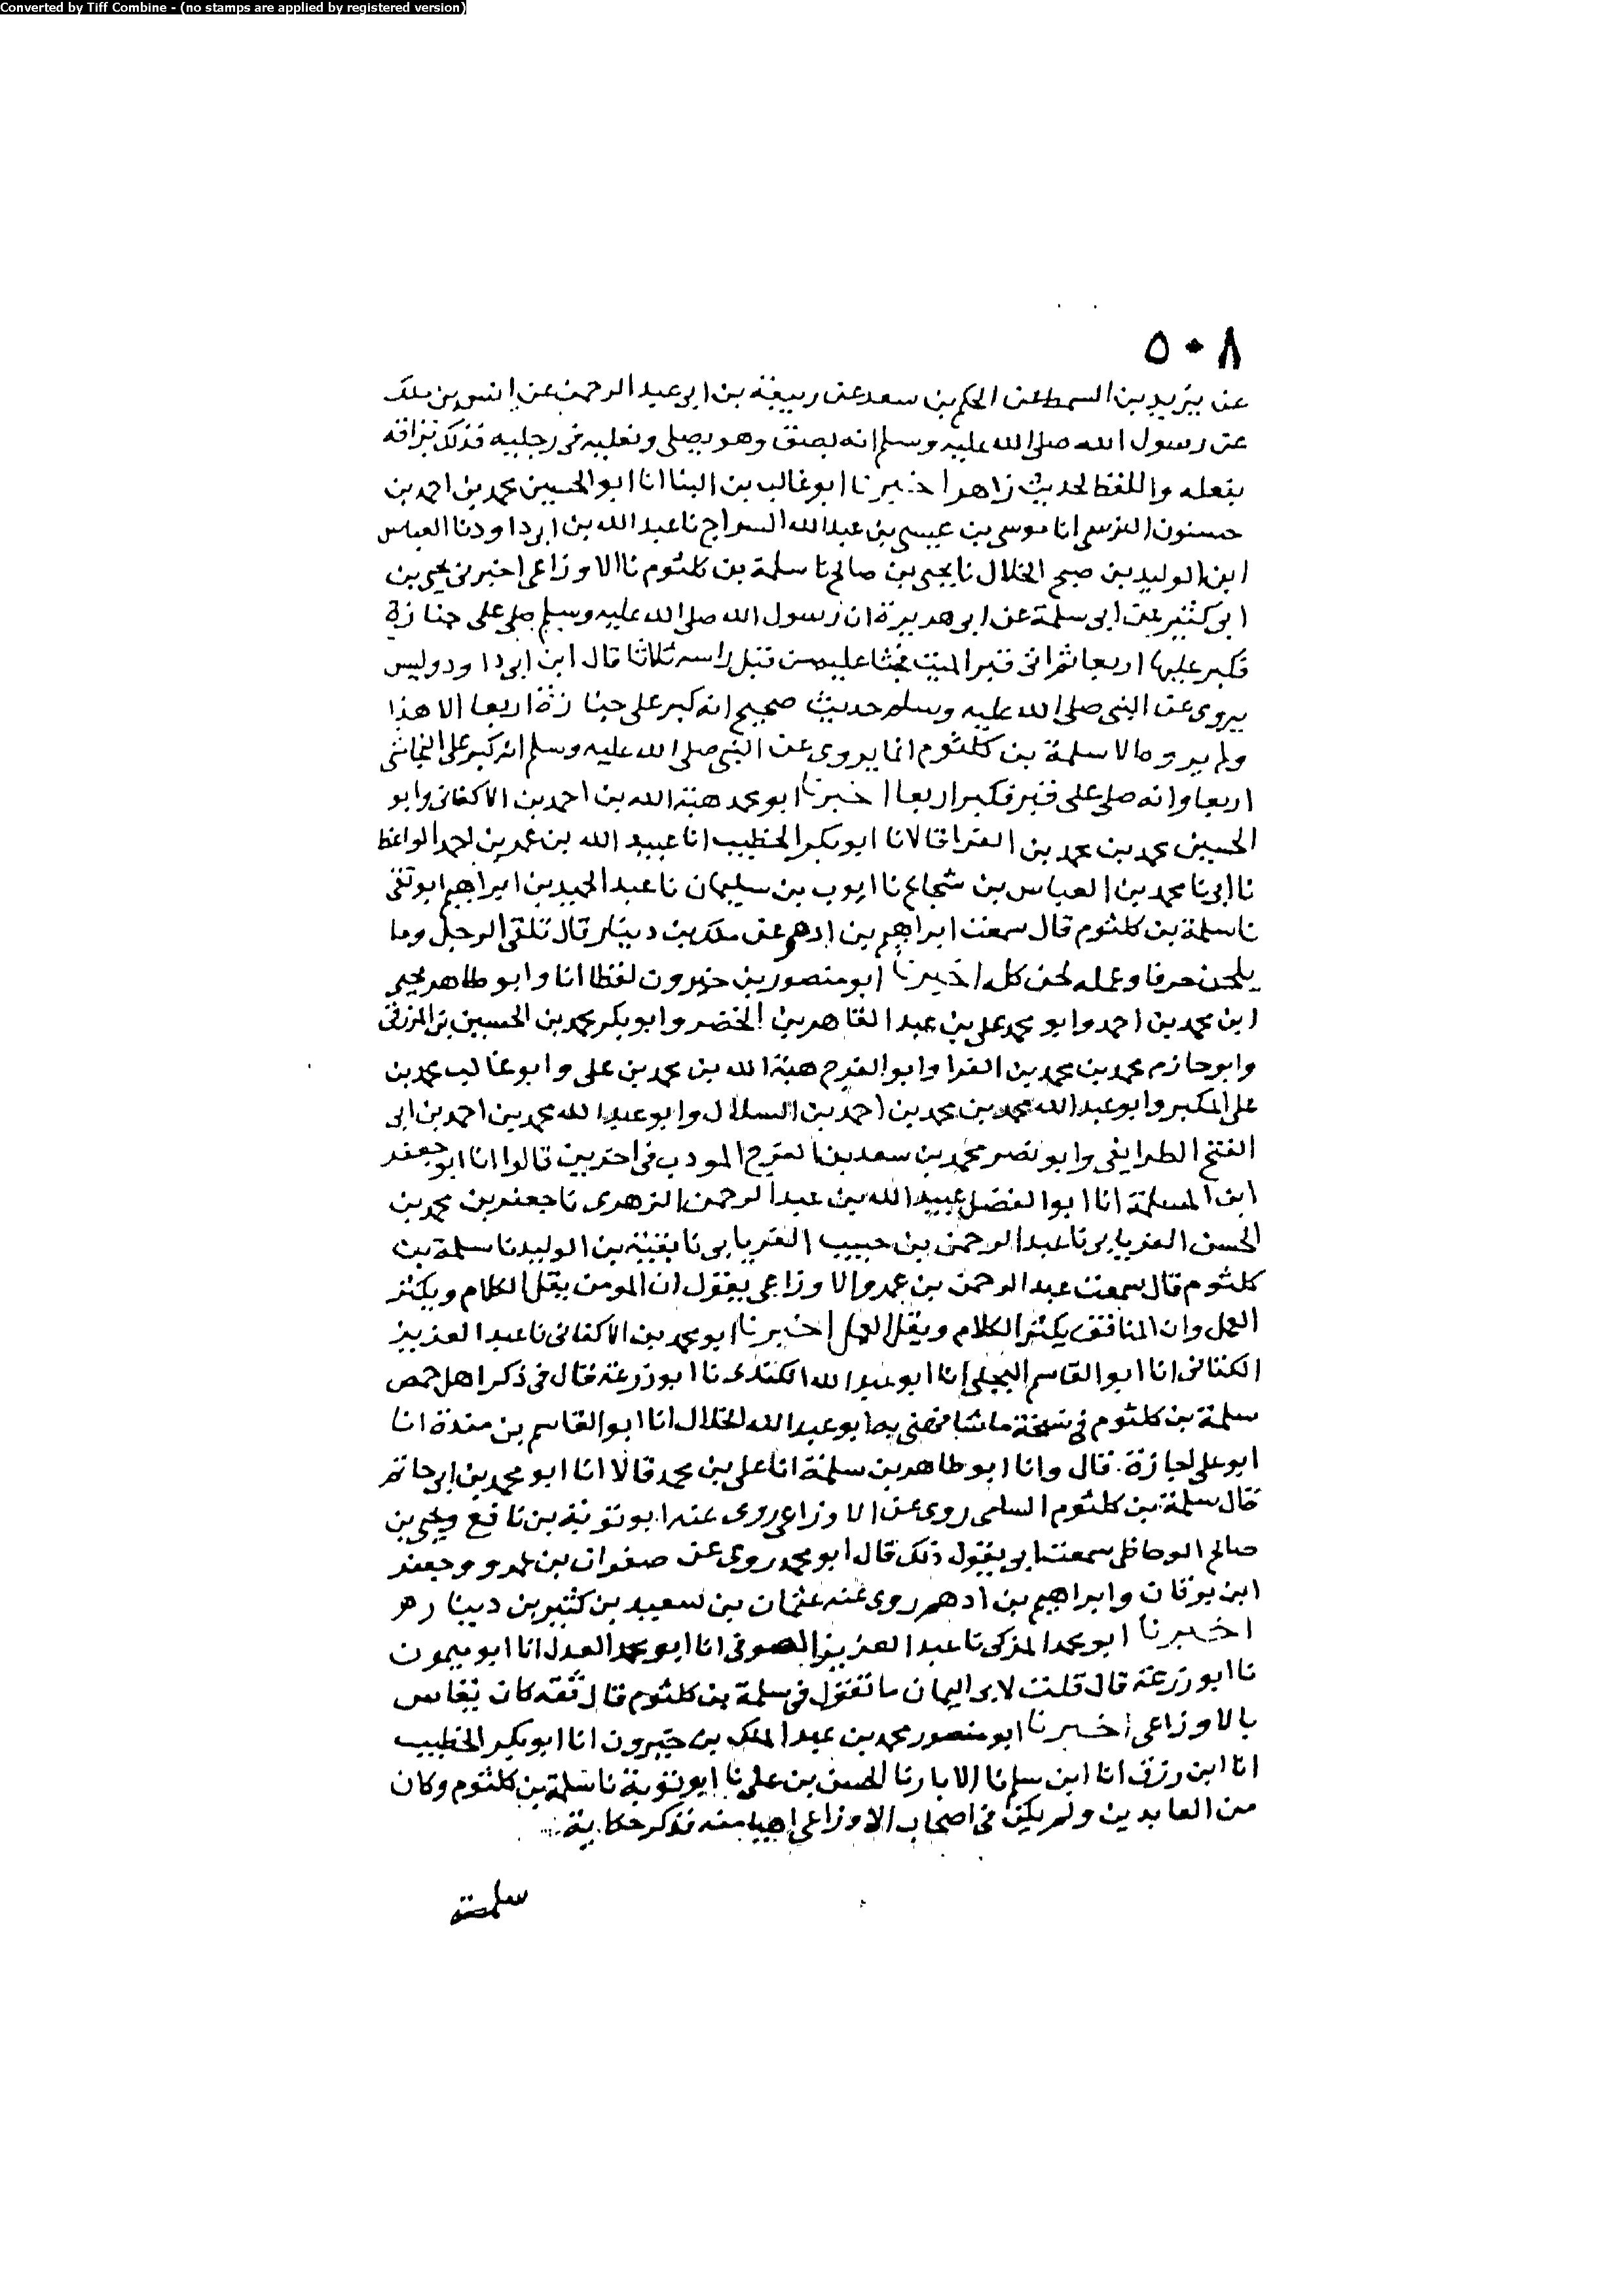 Converted by Tiff Combine - (no stamps are applied by registered version)
٥٠٨
عن يزيد بن السمط عن الحكم بن سعد عن ربيعة بن ابي عبد الرحمن عن انس بن ملك
عن رسول الله صلى الله عليه وسلم انه بصق وهو يصلي ونعليه في رجليه فدلك بزاقه
بنعله واللفظ لحديث زاهر اخبرنا ابو غالب بن البنا انا ابو الحسين محمد بن احمد بن
حسنون النرسي انا موسى بن عيسى بن عبد الله السراج نا عبد الله بن ابي داود نا العباس
ابن الوليد بن صبح الخلال نا يحيى بن صالح نا سلمة بن كلثوم نا الاوزاعي اخبرني يحيى بن
ابي كثير عن ابي سلمة عن ابي هريرة ان رسول الله صلى الله عليه وسلم صلى على جنازة
فكبر عليها اربعا ثم اتى قبر الميت فحثا عليه من قبل راسه ثلاثا قال ابن ابي داود وليس
يروى عن النبي صلى الله عليه وسلم حديث صحيح انه كبر على جنازة اربعا الا هذا
ولم يروه الا سلمة بن كلثوم انما يروى عن النبي صلى الله عليه وسلم انه كبر على النجاشي
اربعا وانه صلى على قبر فكبر اربعا اخبرنا ابو محمد هبة الله بن احمد بن الاكفاني وابو
الحسين محمد بن محمد بن الفرا قالا نا ابو بكر الخطيب انا عبيد الله بن عمر بن احمد الواعظ
نا ابي نا محمد بن العباس بن شجاع نا ايوب بن سليمان نا عبد الحميد بن ابراهيم ابو تقي
نا سلمة بن كلثوم قال سمعت ابراهيم بن ادهم عن ملك بن دينار قال تلقى الرجل وما
يلحن حرفا وعمله لحن كله اخبرنا ابو منصور بن خيرون لفظا انا وابو طاهر يحيى
ابن محمد بن احمد وابو محمد علي بن عبد القاهر بن الخضر وابو بكر محمد بن الحسين بن المزرفي
وابو حازم محمد بن محمد بن الفرا وابو الفرج هبة الله بن محمد بن علي وابو غالب محمد بن
علي المكبر وابو عبد الله محمد بن محمد بن احمد بن السلال وابو عبد الله محمد بن احمد بن ابي
الفتح الطرايفي وابو نصر محمد بن سعد بن الفرج المودب في اخرين قالوا انا ابو جعفر
ابن المسلمة انا ابو الفضل عبيد الله بن عبد الرحمن الزهري نا جعفر بن محمد بن
الحسن الفريابي نا عبد الرحمن بن حبيب الفريابي نا بقية بن الوليد نا سلمة بن
كلثوم قال سمعت عبد الرحمن بن عمرو الاوزاعي يقول ان المومن يقل الكلام ويكثر
العمل وان المنافق يكثر الكلام ويقل العمل اخبرنا ابو محمد بن الاكفاني نا عبد العزيز
الكتاني انا ابو القاسم البجلي انا ابو عبد الله الكندي نا ابو زرعة قال في ذكر اهل حمص
سلمة بن كلثوم في نسخة ما شافهني به ابو عبد الله الخلال انا ابو القاسم بن مندة انا
ابو علي اجازة. قال وانا ابو طاهر بن سلمة انا علي بن محمد قالا انا ابو محمد بن ابي حاتم
قال سلمة بن كلثوم السلمى روى عن الاوزاعي روى عنه ابو توبة بن نافع ويحيى بن
صالح الوحاظي سمعت ابي يقول ذلك قال ابو محمد روى عن صفوان بن عمرو وجعفر
ابن برقان وابراهيم بن ادهم روى عنه عثمان بن سعيد بن كثير بن دينار
اخبرنا ابو محمد المزكي نا عبد العزيز الصوفي انا ابو محمد العدل انا ابو ميمون
نا ابو زرعة قال قلت لابي اليمان ما تقول في سلمة بن كلثوم قال ثقة كان يقاس
بالاوزاعي اخبرنا ابو منصور محمد بن عبد الملك بن خيرون انا ابو بكر الخطيب
انا ابن رزق انا ابن سلم نا الابار نا الحسن بن علي نا ابو توبة نا سلمة بن كلثوم وكان
من العابدين ولم يكن في اصحاب الاوزاعي اهيا منه فذكر حكاية
سلمة